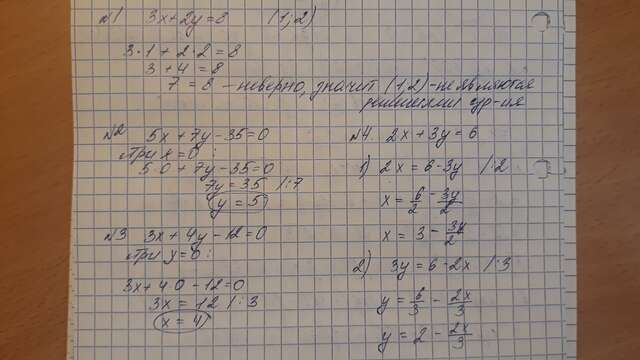 №1 3x+2y=8 (1;2)
3·1+2·2=8
3+4=8
7=8 – неверно, значит (1,2) – не являются
решениями ур-ия
№2 5x+7y-35=0
При x=0:
5·0+7y-35=0
7y=35 /:7
y=5
№3 3x+4y-12=0
При y=0:
3x+4·0-12=0
3x=12 /:3
x=4
№4. 2x+3y=6
1) 2x=6-3y /:2
x=6/2-3y/2
x=3-3y/2
2) 3y=6-2x /:3
y=6/3-2x/3
y=2-2x/3